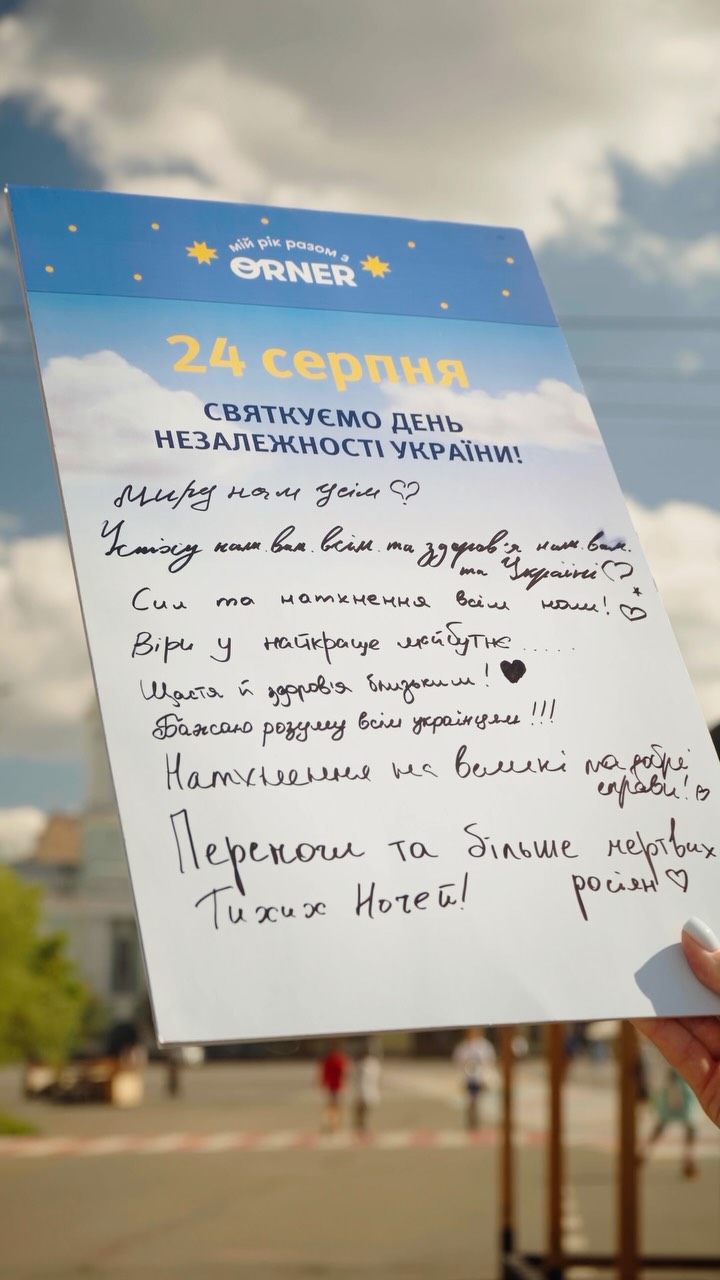 мій рік разом з
ORNER
24 серпня
СВЯТКУЄМО ДЕНЬ
НЕЗАЛЕЖНОСТІ УКРАЇНИ!
Миру нам усім ♡
Успіху нам. вам. всім. та здоров'я нам. вам.
та Україні ♡
Сил та натхнення всім нам! ♡
Віри у найкраще майбутнє.....
Щастя й здоров'я близьким! ♥
Бажаю розуму всім українцям!!!
Натхнення на великі та добрі
справи! ♡
Перемоги та більше мертвих
росіян ♡
Тихих Ночей!